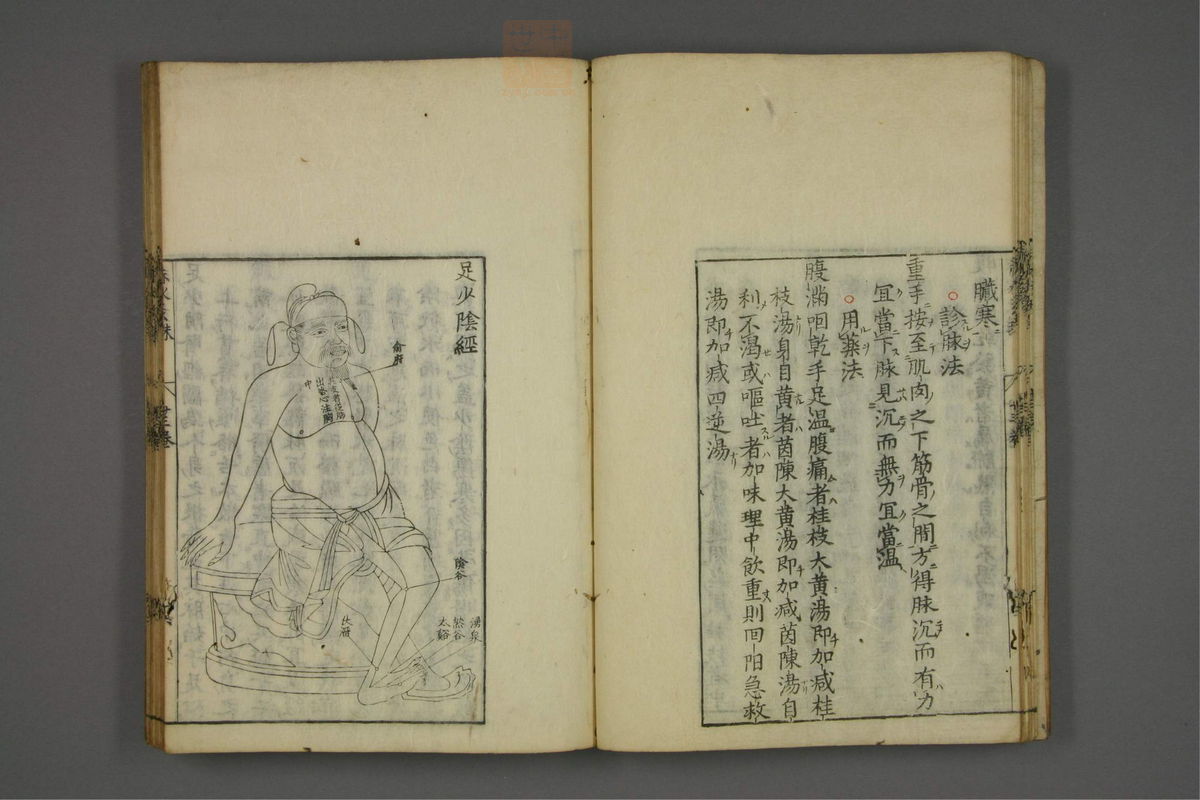 臟寒
診脉法
重手按至肌肉之下筋骨之間方得脉沉而有力
宜當下脉見沉而無力宜當溫
用藥法
腹滿咽乾手足溫腹痛者桂枝大黄湯即加减桂
枝湯身自黄者茵陳大黄湯即加减茵陳湯自
利不渴或嘔吐者加味理中飲重則回阳急救
湯即加减四逆湯
足少陰經
俞府
陰谷
湧泉
然谷
太谿